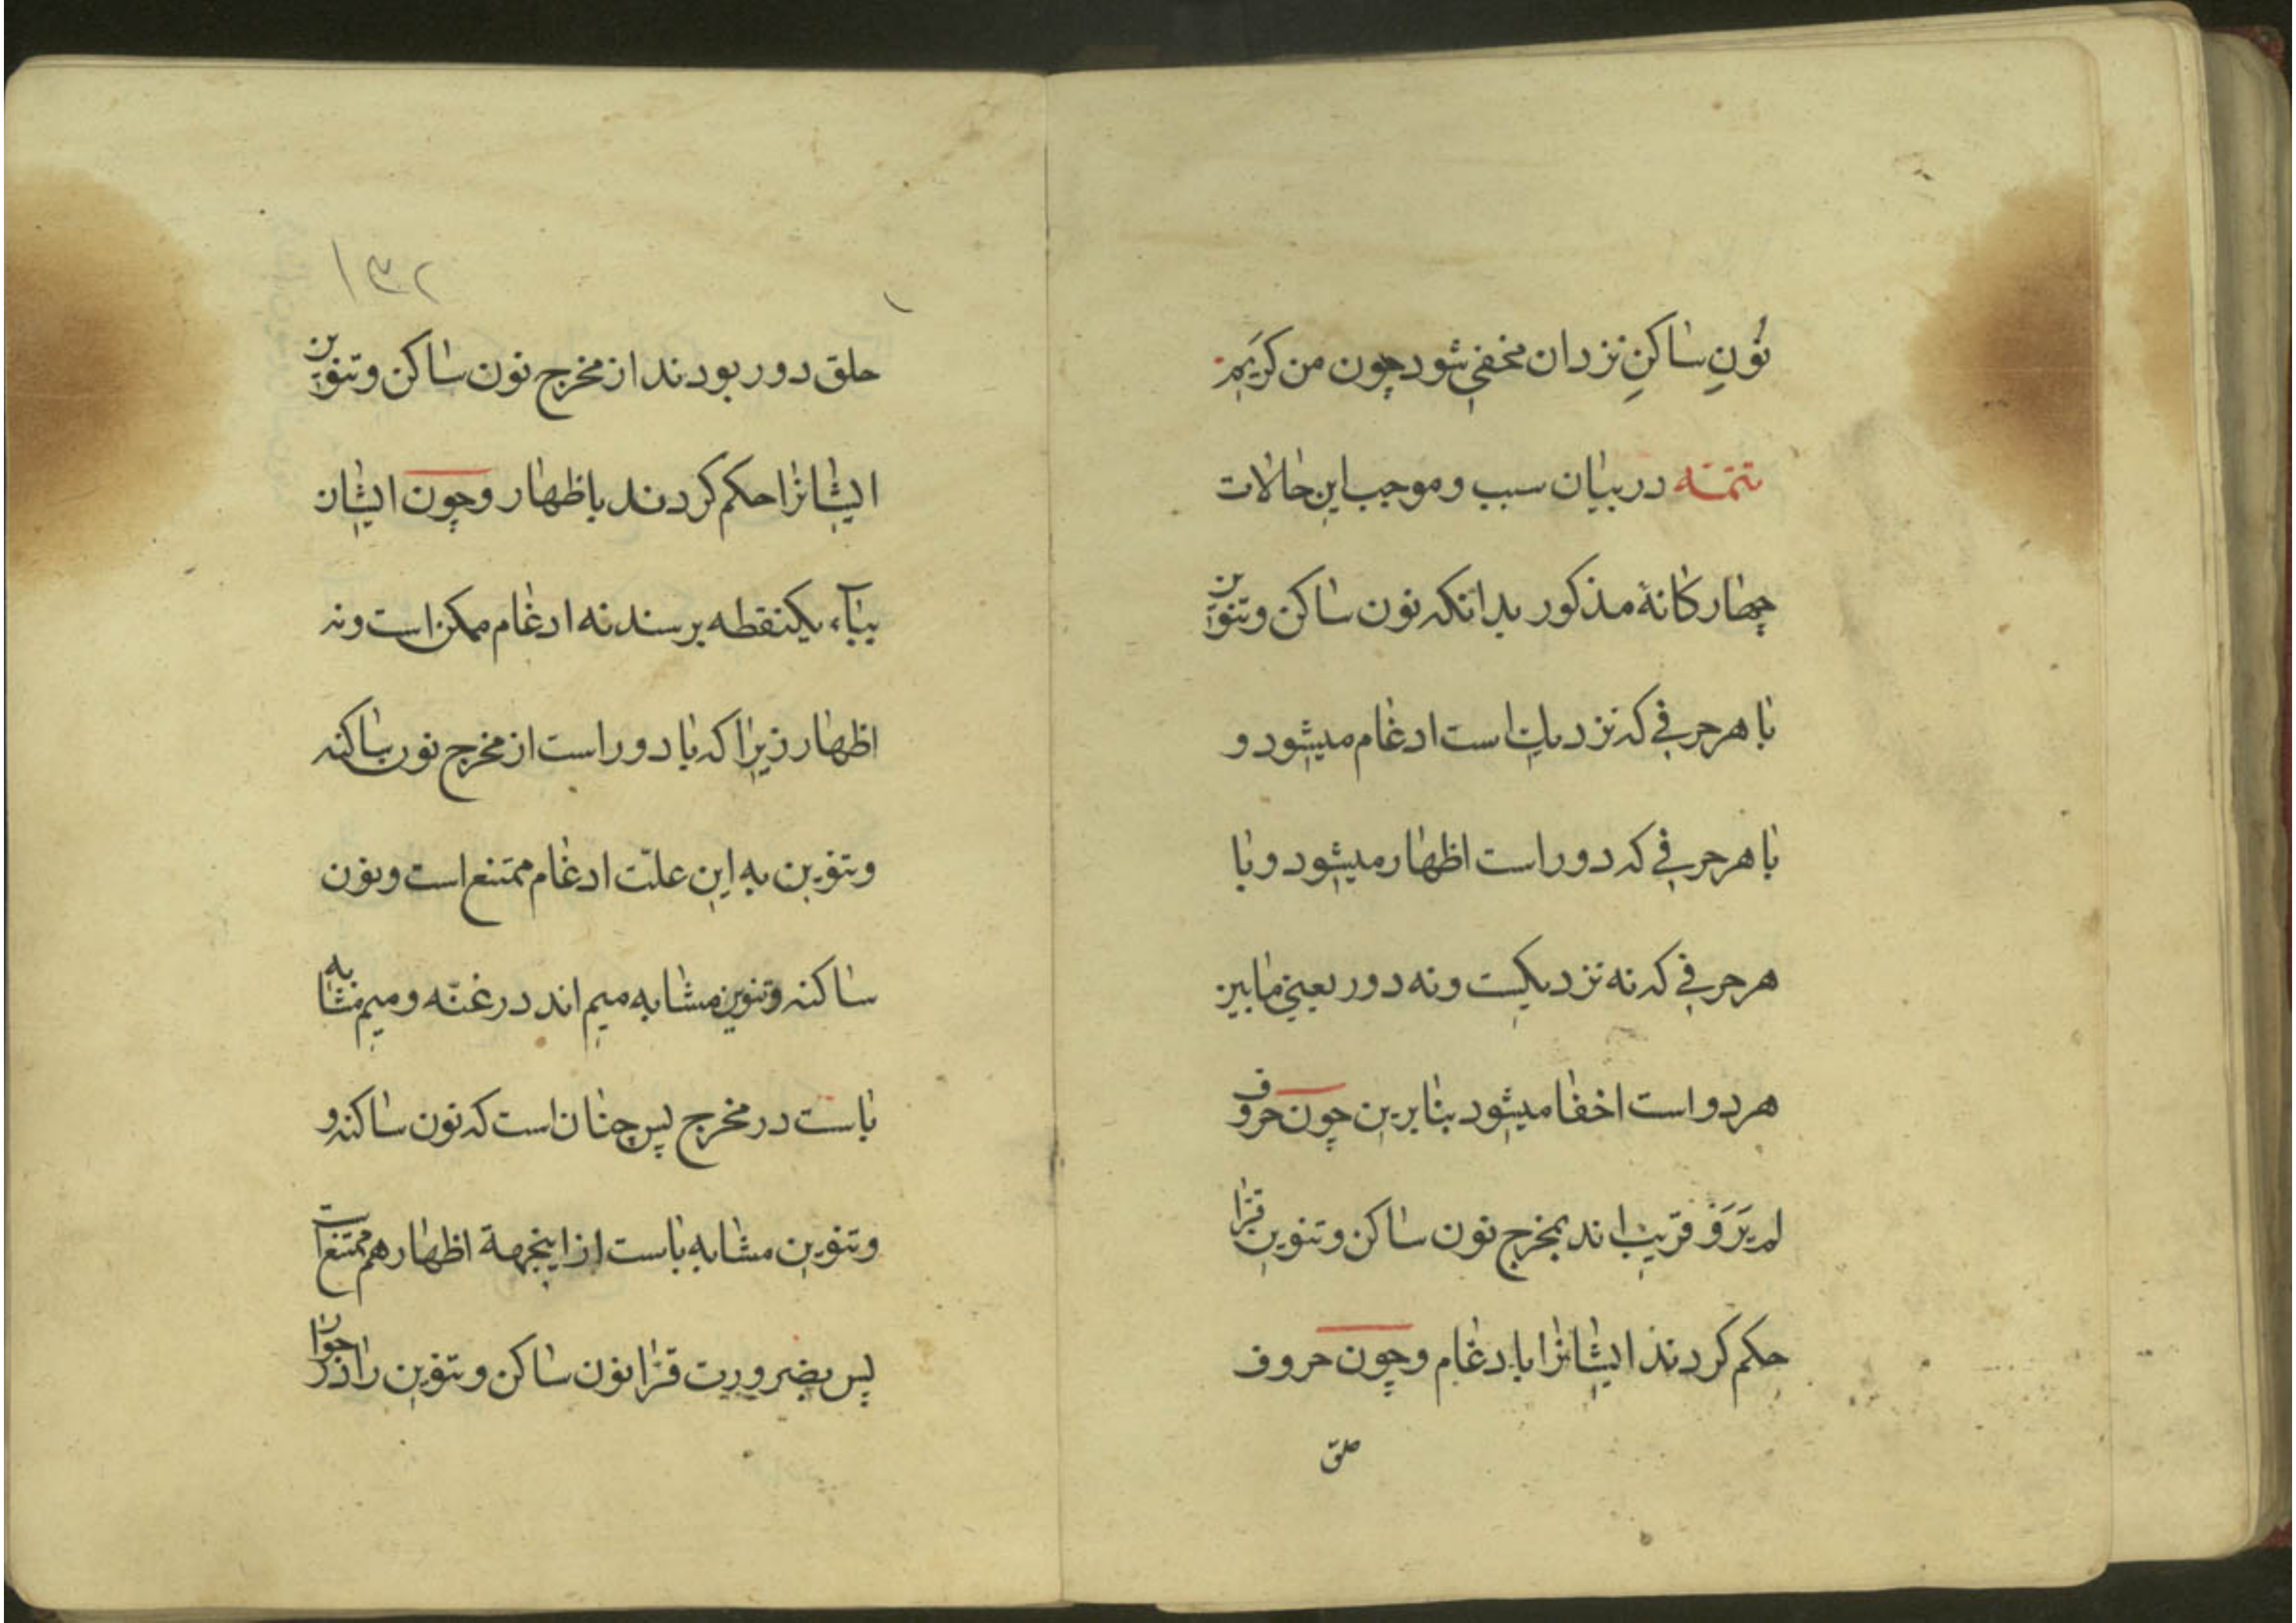 نُونِ ساکنِ نزد ان مخفی شود چون من کَرَیمٍ
تتمّه در بیان سبب و موجب این حالات
چهار کانهٔ مذکور بدانکه نون ساکن و تنوین
با هر حرفی که نزدیکست ادغام میشود و
با هر حرفی که دور است اظهار میشود و با
هر حرفی که نه نزدیکست و نه دور یعنی مابین
هر دو است اخفا میشود بنابرین چون حروف
لم یَرَوَ قریب اند بمخرج نون ساکن و تنوین قرّا
حکم کردند ایشانرا بادغام و چون حروف
حلق
۱۳۲
حلق دور بودند از مخرج نون ساکن و تنوین
ایشانرا حکم کردند باظهار و چون ایشان
ببآء یکنقطه برسند نه ادغام ممکن است و نه
اظهار زیرا که با دور است از مخرج نون ساکنه
و تنوین به این علّت ادغام ممتنع است و نون
ساکنه و تنوین مشابه میم اند در غنّه و میم مشابه
باست در مخرج پس چنان است که نون ساکنه و
و تنوین مشابه باست از اینجهة اظهار هم ممتنع است
پس بضرورت قرّا نون ساکن و تنوین را در جوار